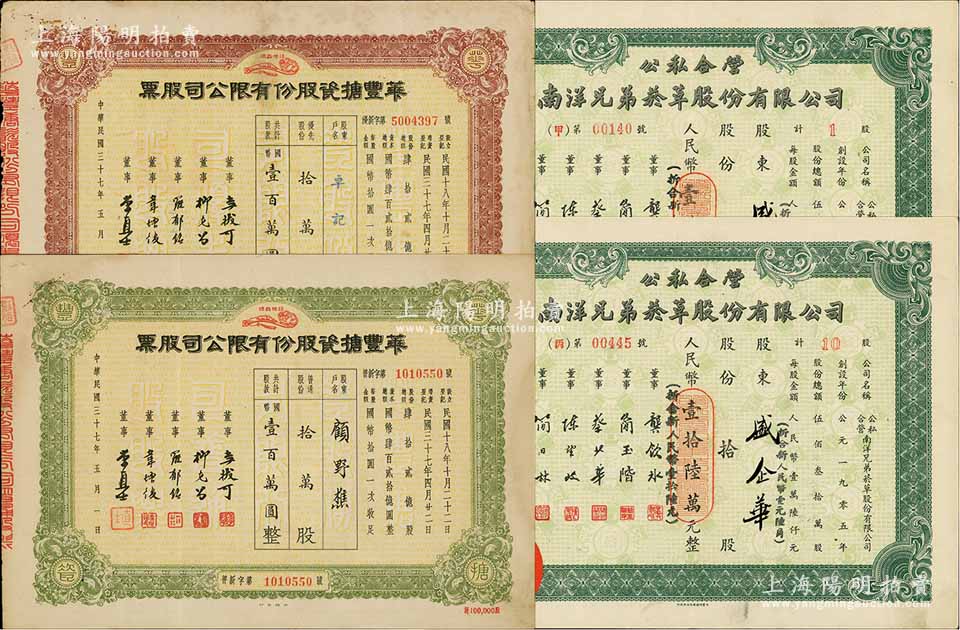 上海陽明拍賣
www.yangmingauction.com
華豐搪瓷股份有限公司股票
優新字第 5004397 號
股東戶名
卓記
優先股份
拾萬
共計股款
國幣壹百萬圓
民國三十七年四月廿二
中華民國三十七年五月
董事
董事
董事
董事
董事
公私合營
南洋兄弟菸草股份有限公司
(甲)第 00140 號
計 1 股
公司名稱
創設年份
股份總額
每股金額
股東
股份
人民幣壹
(折合新
董事
董事
董事
董事
華豐搪瓷股份有限公司股票
普新字第 1010550 號
民國十八年十月二十二日
民國三十七年四月廿二日
肆拾貳億股
國幣肆百貳拾億圓整
國幣拾圓一次收足
股東戶名
顧野樵
普通股份
拾萬股
共計股款
國幣壹百萬圓整
中華民國三十七年五月一日
董事
董事
董事
董事
董事
普新字第 1010550 號
新100,000股
公私合營
南洋兄弟菸草股份有限公司
(丙)第 00445 號
計 10 股
公司名稱 公私合營南洋兄弟菸草股份有限公司
創設年份 公元一九零五年
股份總額 伍佰叁拾萬股
每股金額 人民幣壹萬陸仟元
(折合新人民幣壹元陸角)
股東 盛企華
股份 拾股
人民幣壹拾陸萬元整
(折合新人民幣壹拾陸元)
董事 龔飲冰
董事 簡玉階
董事
董事
上海陽明拍賣
www.yangmingauction.com
上海陽明拍賣
www.yangmingauction.com